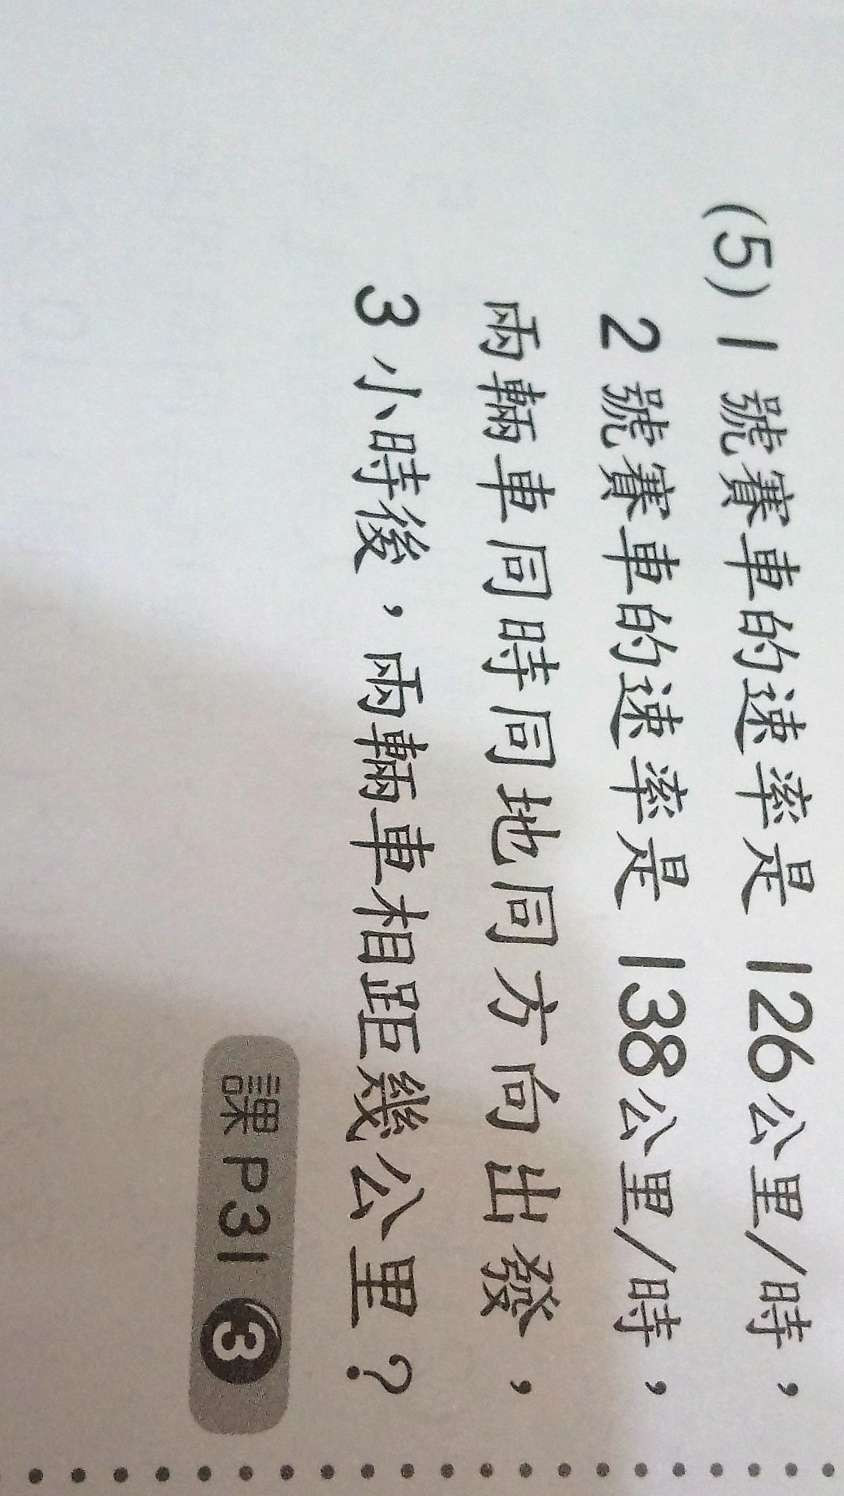 (5) 1 號賽車的速率是 126公里/時，
2 號賽車的速率是 138公里/時，
兩輛車同時同地同方向出發，
3 小時後，兩輛車相距幾公里？
課 P31 3